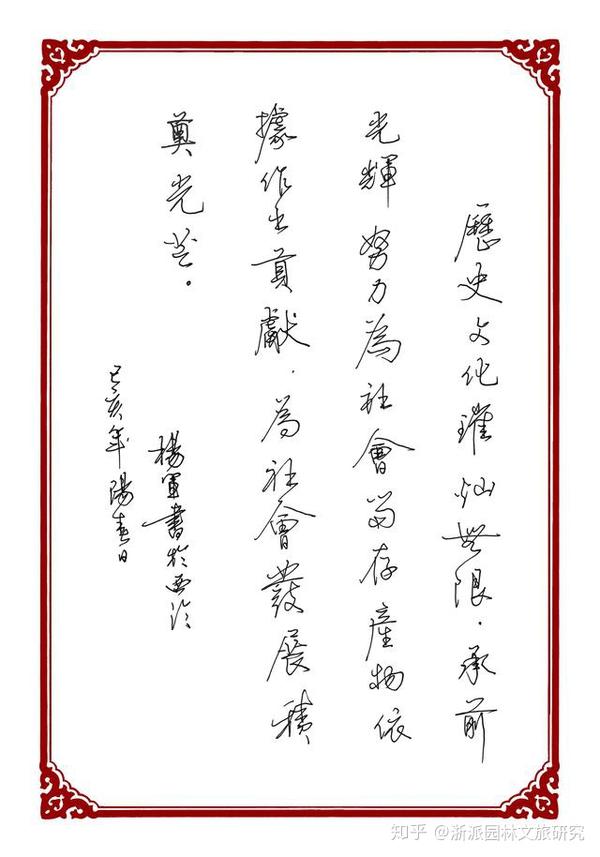 歷史文化璀燦無限.承前
光輝努力為社會留存產物依
據作出貢獻.為社會發展積
奠光芒。
楊軍書於西泠
己亥年陽春日
知乎 @浙派园林文旅研究